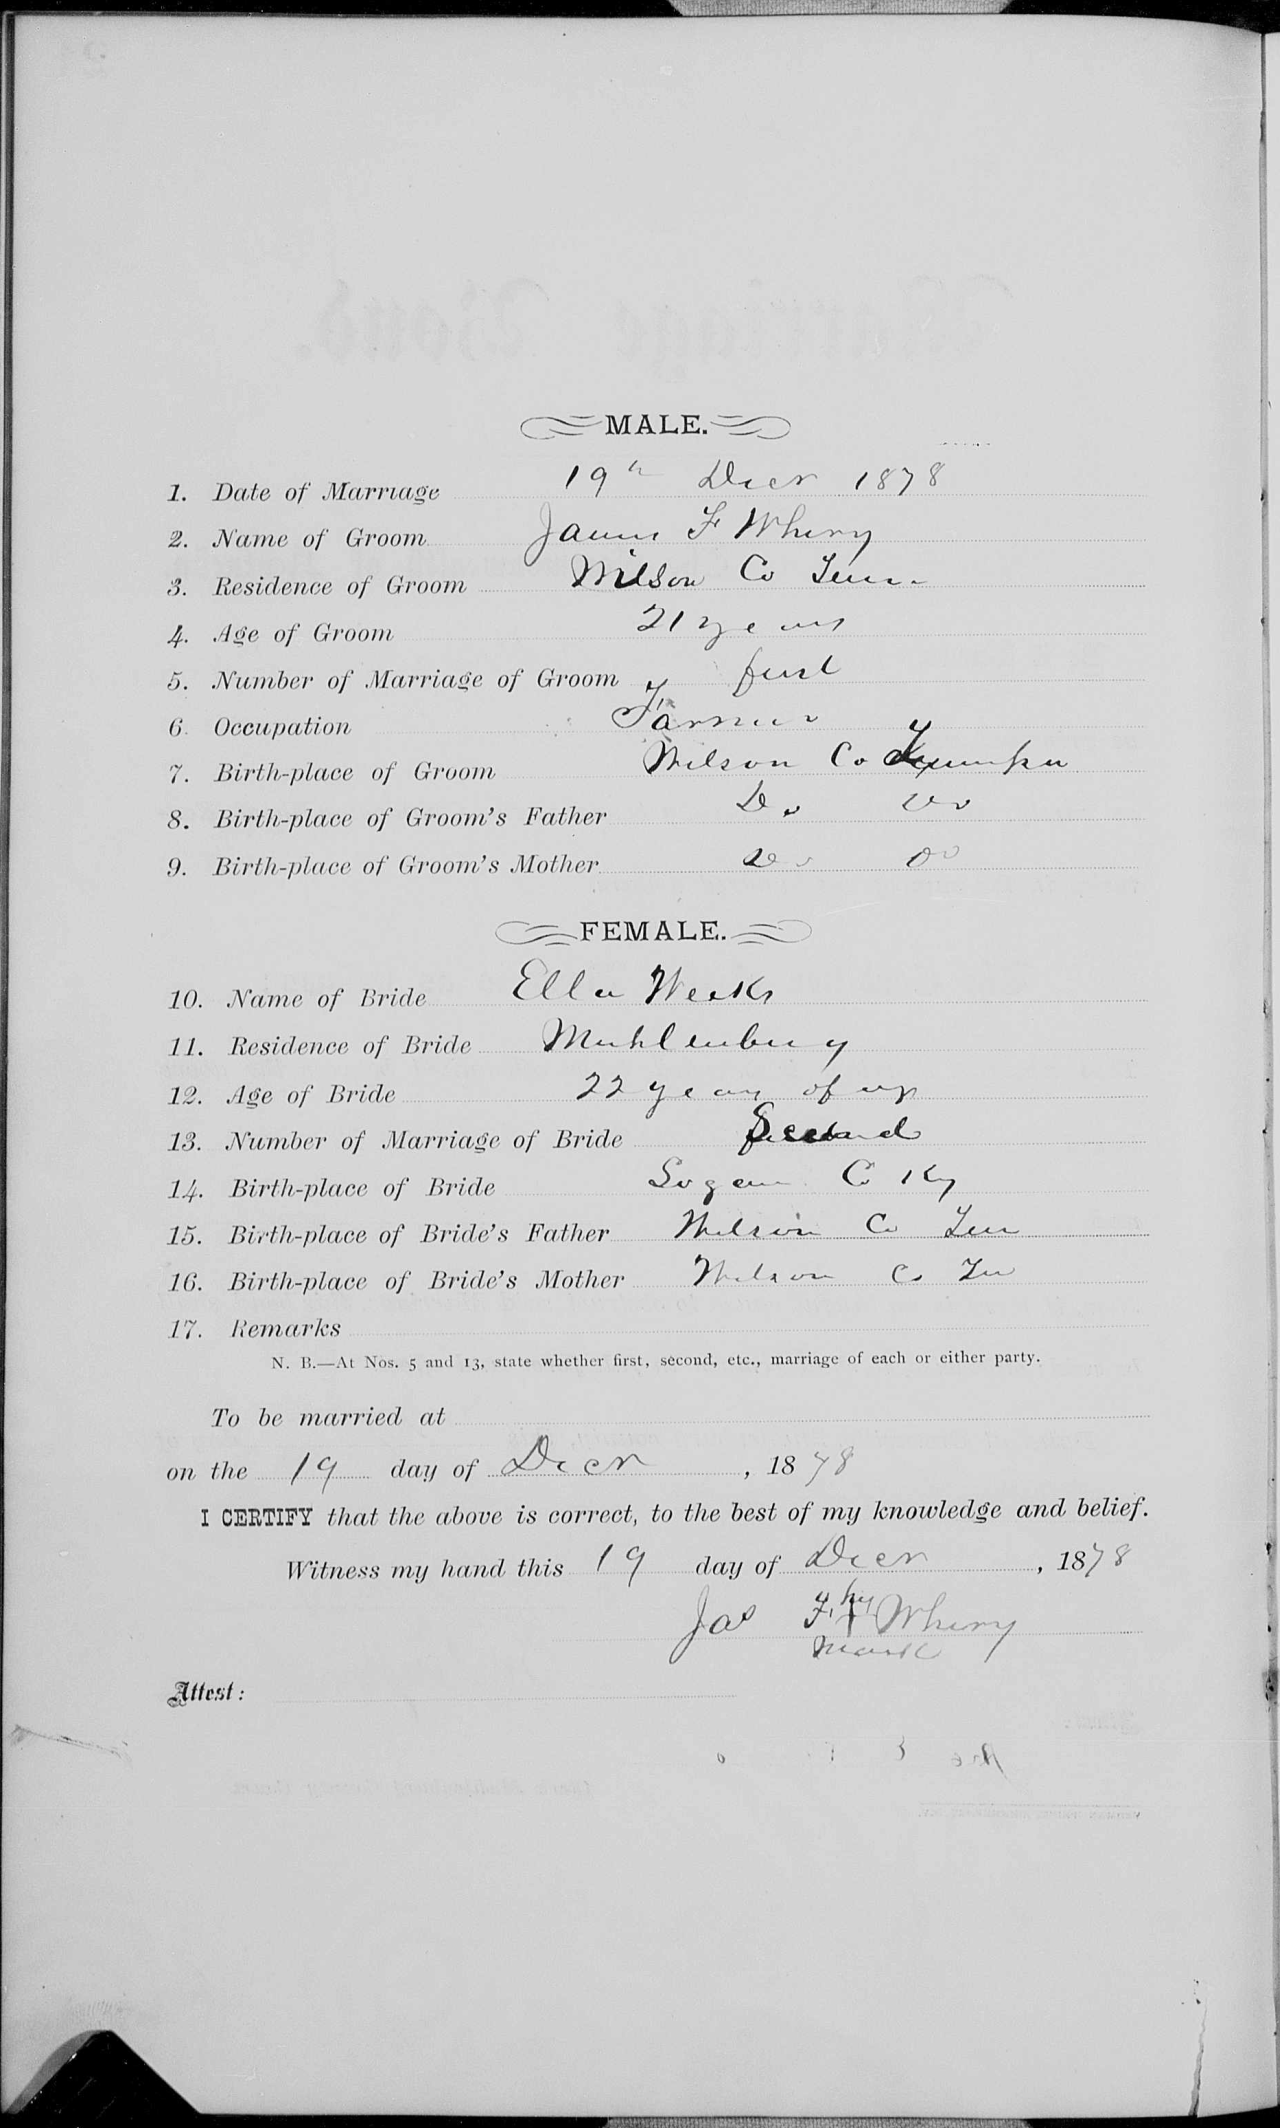 MALE.
1. Date of Marriage 19th Decr 1878
2. Name of Groom James F Whery
3. Residence of Groom Wilson Co Tenn
4. Age of Groom 21 years
5. Number of Marriage of Groom first
6. Occupation Farmer
7. Birth-place of Groom Wilson Co
8. Birth-place of Groom's Father Do Do
9. Birth-place of Groom's Mother Do Do
FEMALE.
10. Name of Bride Ella Weeks
11. Residence of Bride Muhlenburg
12. Age of Bride 22 years of age
13. Number of Marriage of Bride Second
14. Birth-place of Bride Logan Co Ky
15. Birth-place of Bride's Father Wilson Co Ten
16. Birth-place of Bride's Mother Wilson Co Ten
17. Remarks
N. B.—At Nos. 5 and 13, state whether first, second, etc., marriage of each or either party.
To be married at
on the 19 day of Decr, 1878
I CERTIFY that the above is correct, to the best of my knowledge and belief.
Witness my hand this 19 day of Decr, 1878
his
Jas F. X Whery
mark
Attest: